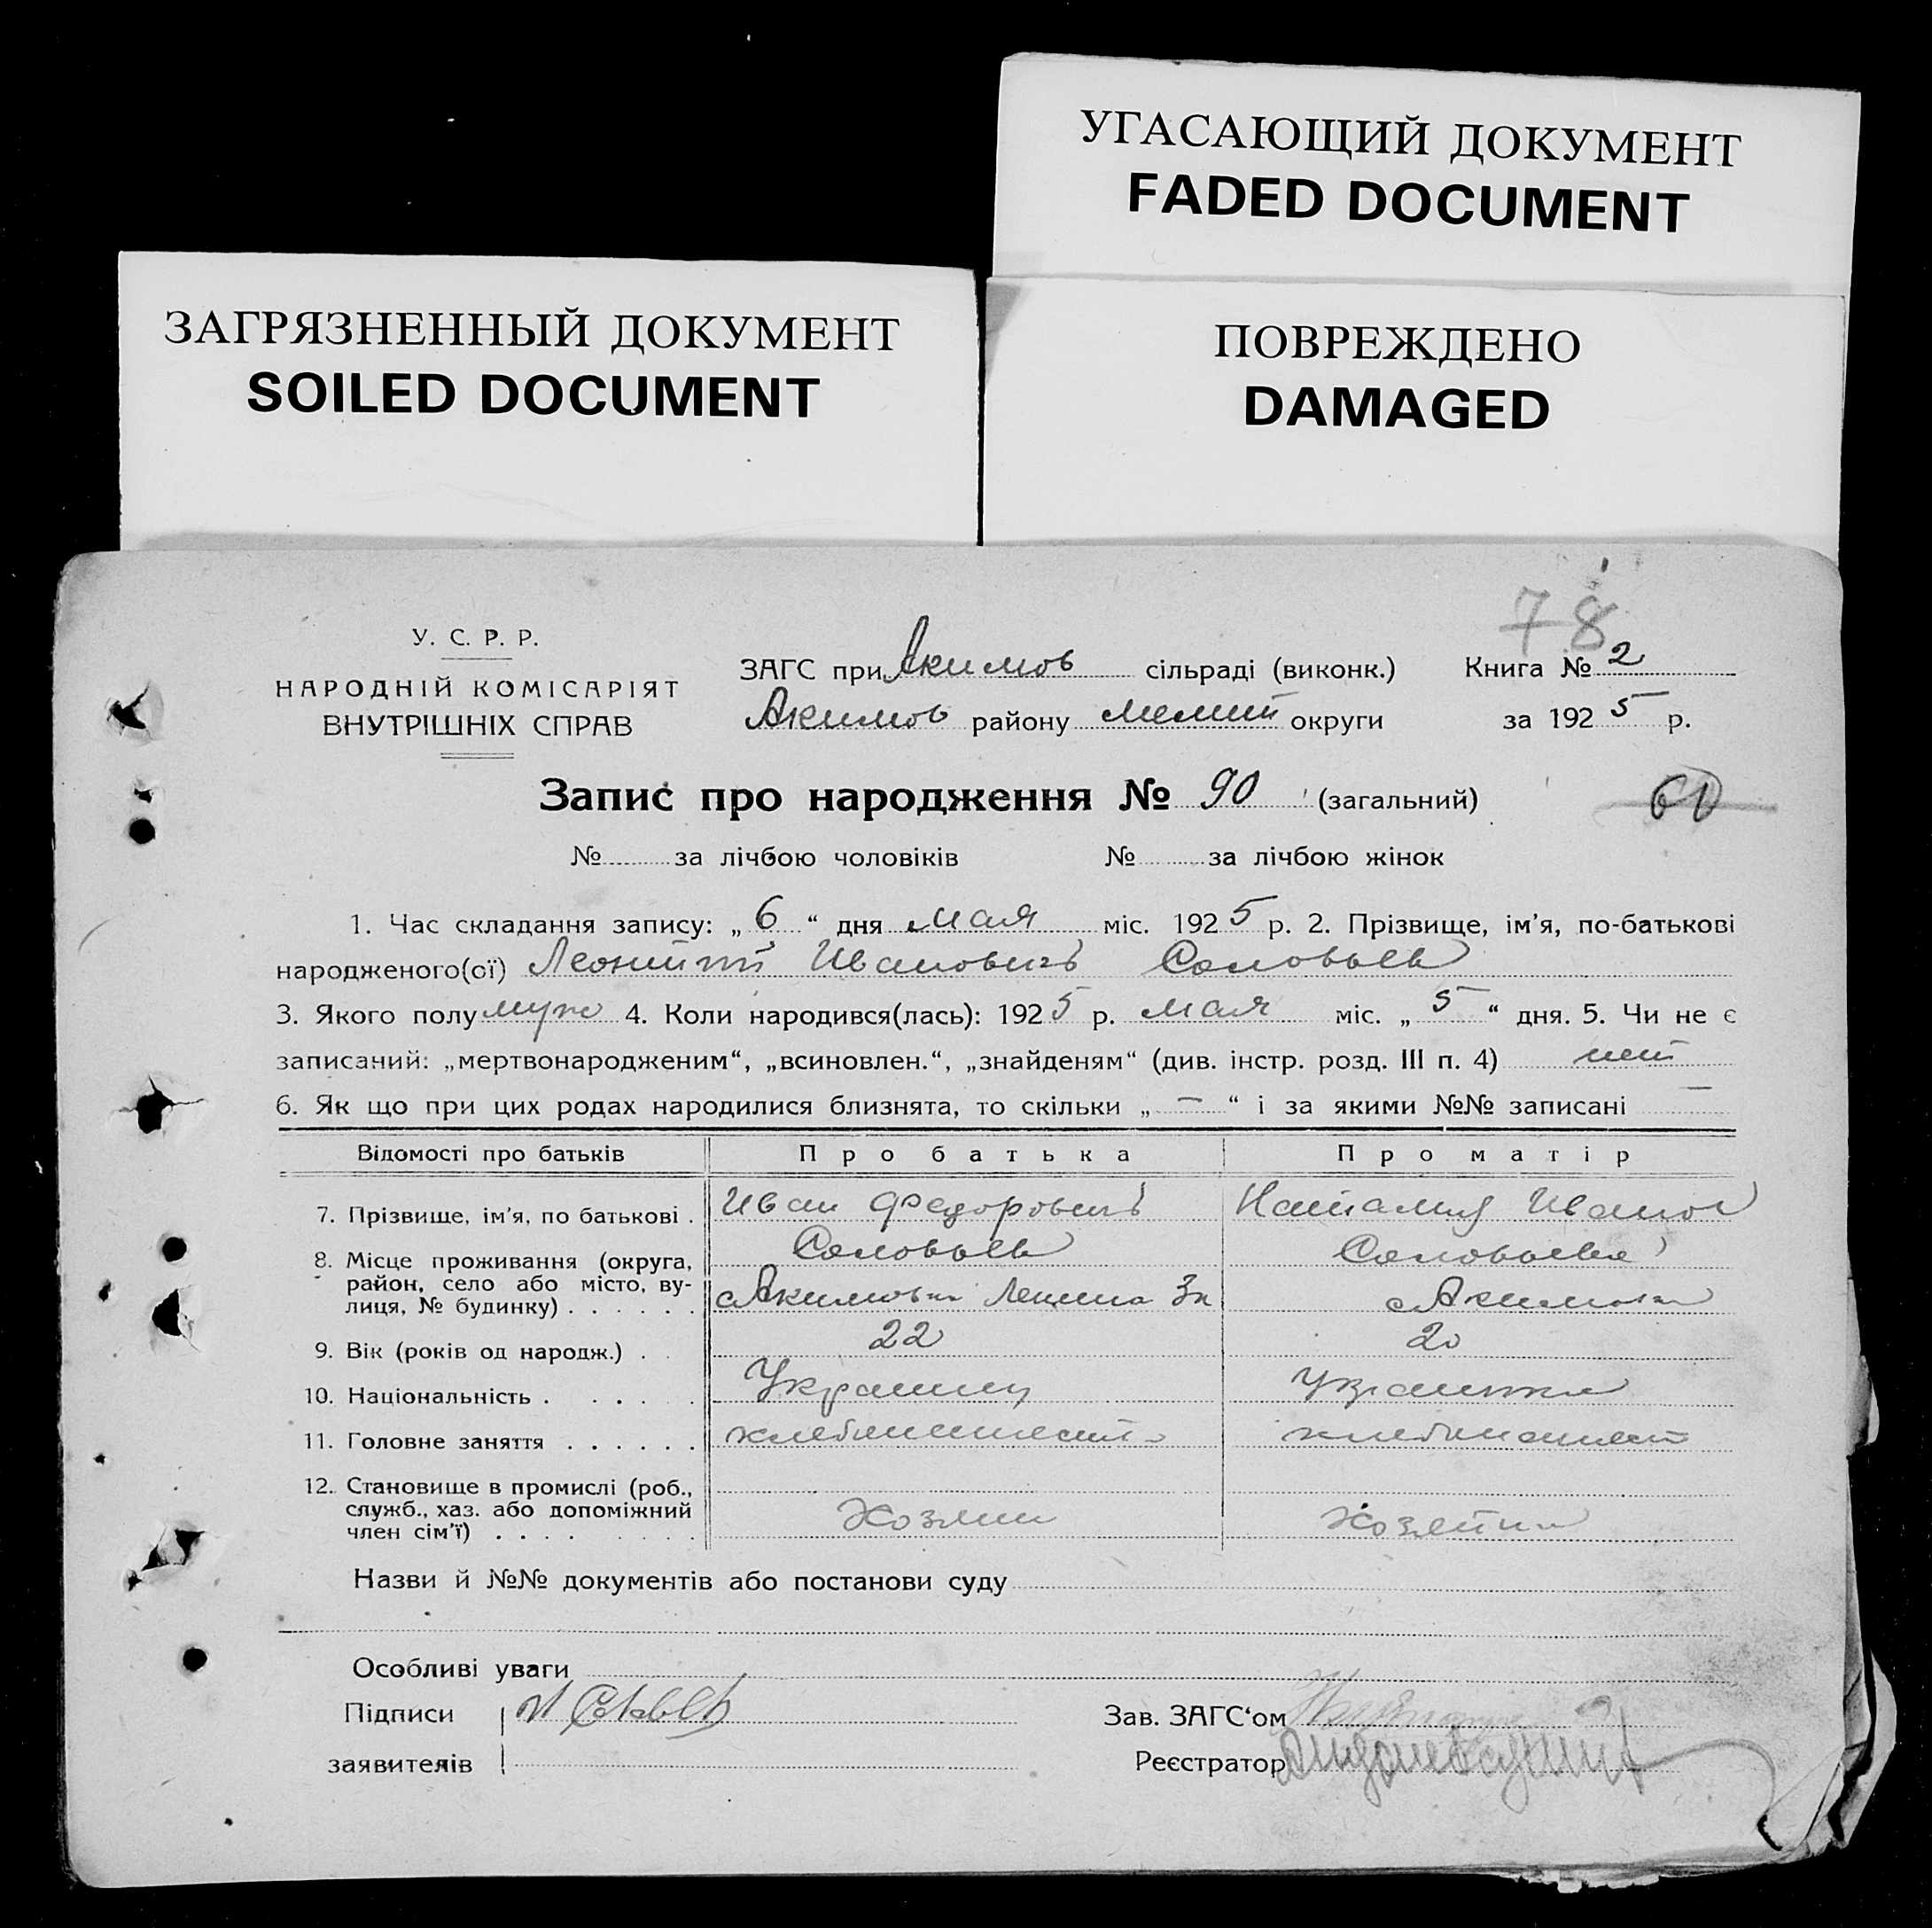 УГАСАЮЩИЙ ДОКУМЕНТ
FADED DOCUMENT
ЗАГРЯЗНЕННЫЙ ДОКУМЕНТ
SOILED DOCUMENT
ПОВРЕЖДЕНО
DAMAGED
78
У. С. Р. Р.
НАРОДНІЙ КОМІСАРІЯТ
ВНУТРІШНІХ СПРАВ
ЗАГС при Акимов сільраді (виконк.) Книга № 2
Акимов району Мелит округи за 1925 р.
Запис про народження № 90 (загальний)
№ за лічбою чоловіків № за лічбою жінок
1. Час складання запису: „ 6 “ дня мая міс. 1925 р. 2. Прізвище, ім'я, по-батькові
народженого(ої) Иванович Соловьев
3. Якого полу муж 4. Коли народився(лась): 1925 р. мая міс. „ 5 “ дня. 5. Чи не є
записаний: „мертвонародженим“, „всиновлен.“, „знайденям“ (див. інстр. розд. III п. 4) нет
6. Як що при цих родах народилися близнята, то скільки „ — “ і за якими №№ записані —
Відомості про батьків Про батька Про матір
7. Прізвище, ім'я, по батькові . Иван Федорович Наталия Иванов
Соловьев Соловьева
8. Місце проживання (округа,
район, село або місто, ву-
лиця, № будинку) . . . . . . Акимовка Ленина Акимовка
9. Вік (років од народж.) . . 22 20
10. Національність . . . . . Украинец Украинка
11. Головне заняття . . . . . . хлебопашест хлебопашест
12. Становище в промислі (роб.,
служб., хаз. або допоміжний
член сім'ї) . . . . . . . . Хозяин Хозяйка
Назви й №№ документів або постанови суду
Особливі уваги
Підписи
заявителів
Зав. ЗАГС'ом
Реєстратор